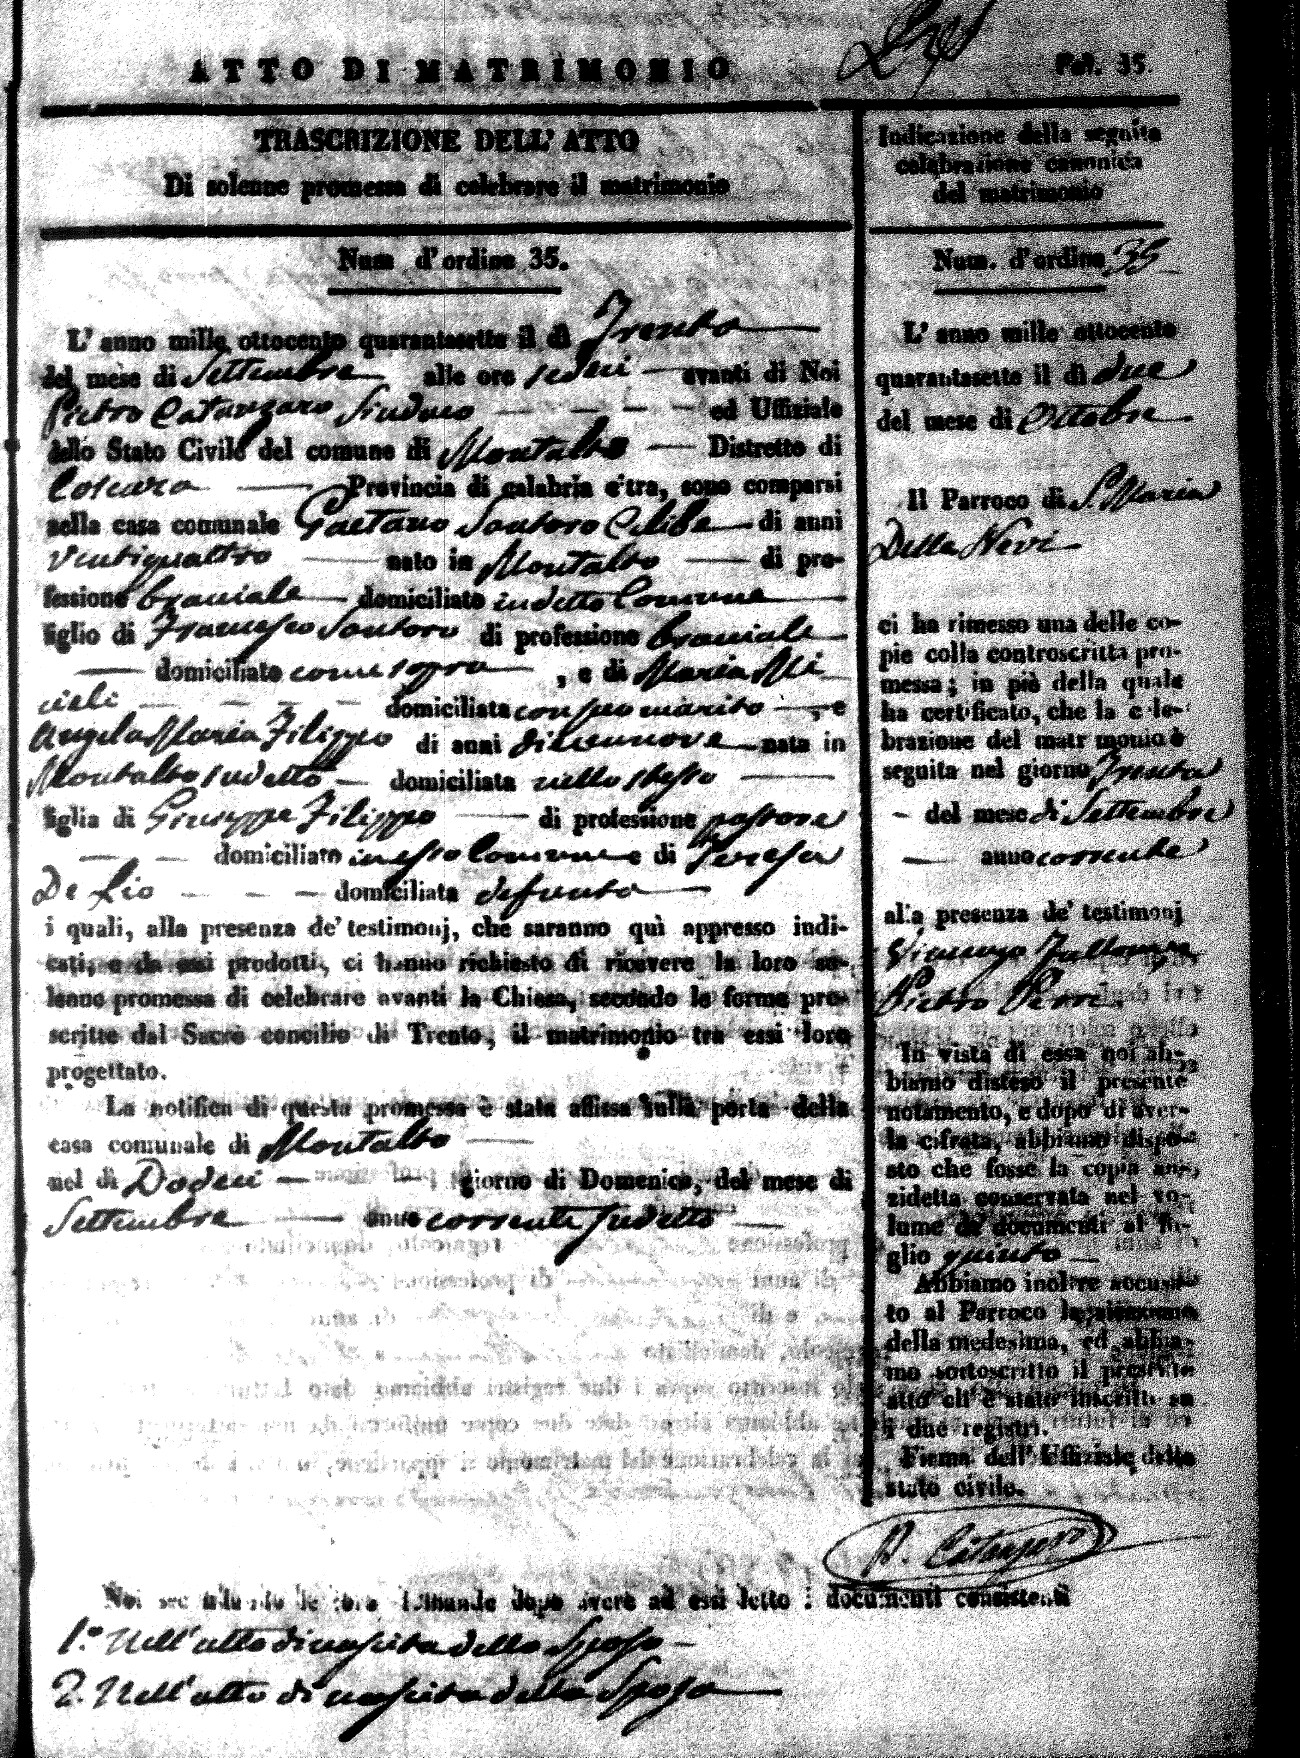 ATTO DI MATRIMONIO
Fol. 35.
TRASCRIZIONE DELL' ATTO
Di solenne promessa di celebrare il matrimonio
Num d'ordine 35.
L' anno mille ottocento quarantasette il dì Trenta
del mese di Settembre alle ore sedeci avanti di Noi
Pietro Catanzaro Sindaco ed Uffiziale
dello Stato Civile del comune di Montalto Distretto di
Cosenza Provincia di calabria citra, sono comparsi
nella casa comunale Gaetano Santoro Celibe di anni
Ventiquattro nato in Montalto di pro-
fessione braciale domiciliato in detto Comune
figlio di Francesco Santoro di professione braciale
domiciliato come sopra, e di Maria Mi
cieli domiciliata con suo marito, e
Angela Maria Filippo di anni diecinnove nata in
Montalto sudetto domiciliata nello stesso
figlia di Giuseppe Filippo di professione pastore
domiciliato in esso Comune e di Teresa
De Lio domiciliata defunta
i quali, alla presenza de' testimonj, che saranno quì appresso indi-
cati, e da essi prodotti, ci hanno richiesto di ricevere la loro so-
lenne promessa di celebrare avanti la Chiesa, secondo le forme pre-
scritte dal Sacro concilio di Trento, il matrimonio tra essi loro
progettato.
La notifica di questa promessa è stata affissa sulla porta della
casa comunale di Montalto
nel dì Dodeci giorno di Domenica, del mese di
Settembre anno corrente sudetto
Indicazione della seguita
celebrazione canonica
del matrimonio
Num. d'ordine 35
L' anno mille ottocento
quarantasette il dì due
del mese di Ottobre
Il Parroco di S. Maria
Della Nevi
ci ha rimesso una delle co-
pie colla controscritta pro-
messa; in piè della quale
ha certificato, che la cele-
brazione del matrimonio è
seguita nel giorno Trenta
del mese di Settembre
anno corrente
alla presenza de' testimonj
Pietro Perri
In vista di essa noi ab-
biamo disteso il presente
notamento, e dopo di aver-
la cifrata, abbiamo dispo-
sto che fosse la copia an-
zidetta conservata nel vo-
lume de' documenti al fo-
glio quinto
Abbiamo inoltre accusa-
to al Parroco la ricezione
della medesima, ed abbia-
mo sottoscritto il presente
atto ch' è stato inscritto su
i due registri.
Firma dell' Uffiziale dello
stato civile.
P. Catanzaro
Noi secondando le loro dimande dopo avere ad essi letto i documenti consistenti
1.° Nell'atto di nascita dello Sposo
2. Nell'atto di nascita della Sposa